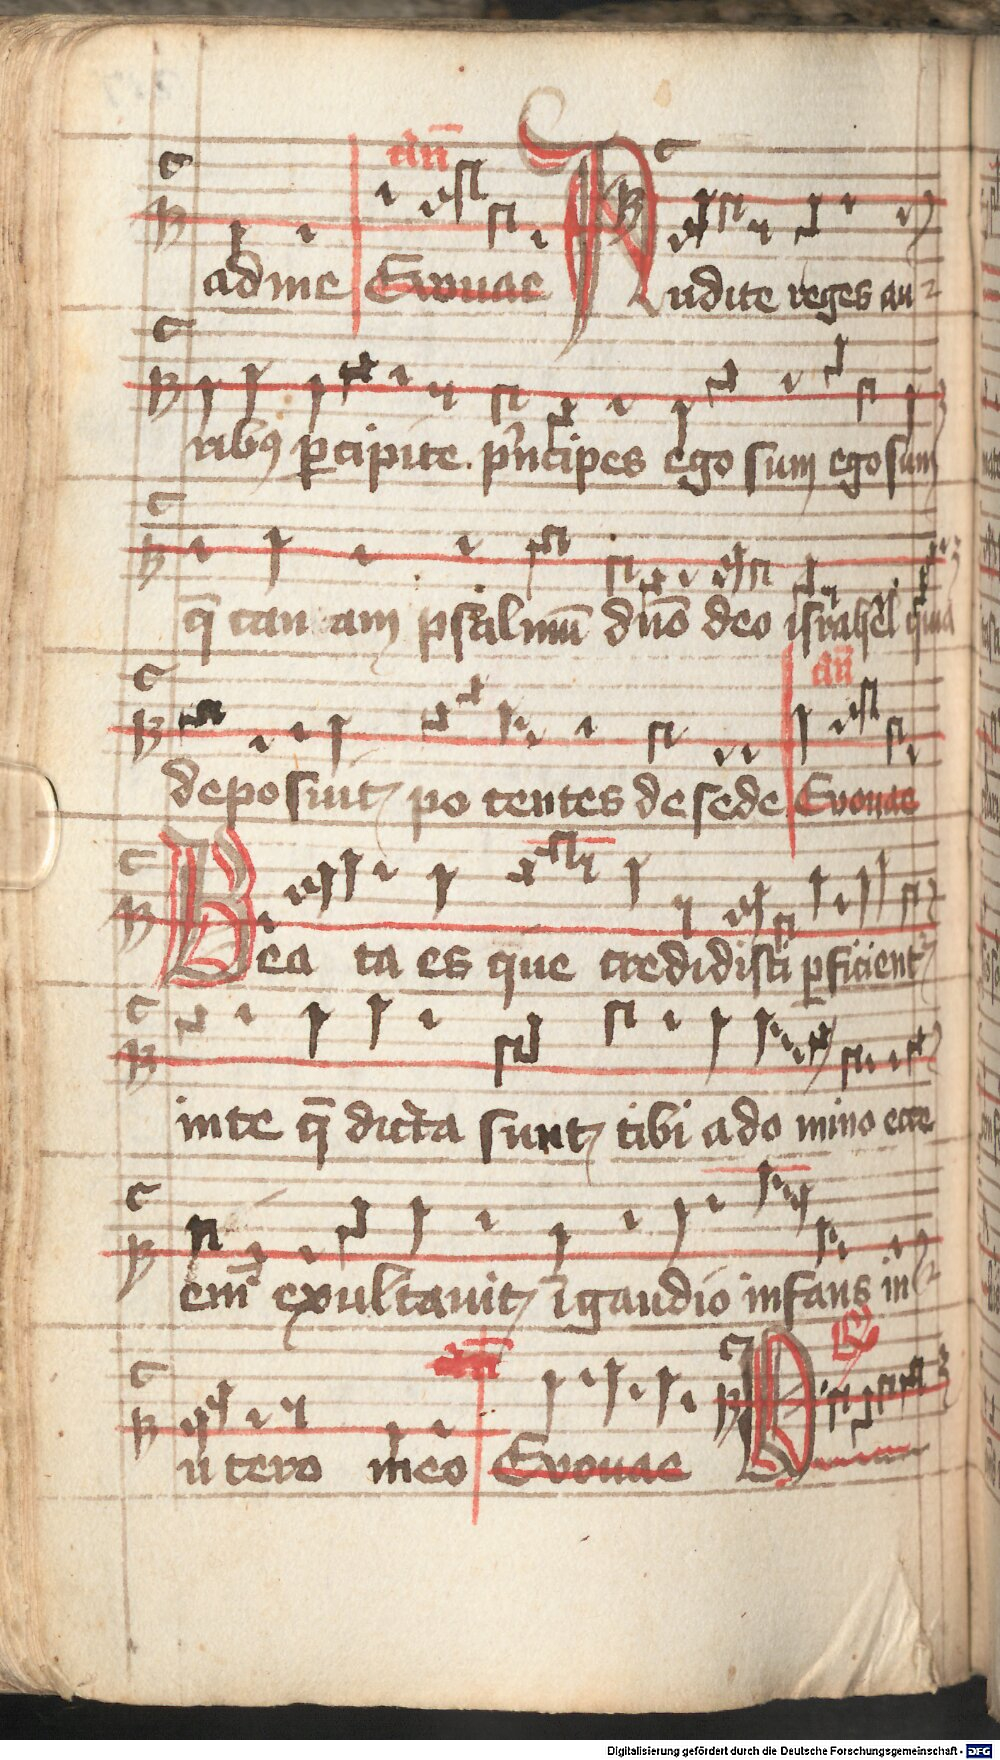 an̄
ad me Evouae Audite reges au
ribꝯ ꝑcipite. pⁱncipes ego sum ego sum
q̄ can am psalmū dn̄o deo israhel quia
an̄
deposuit potentes de sede Evouae
Bea ta es que credidisti ꝑficient
in te q̄ dicta sunt tibi a domino ecce
em̄ exultauit ī gaudio infans in
an̄
utero meo Evouae
Digitalisierung gefördert durch die Deutsche Forschungsgemeinschaft - DFG